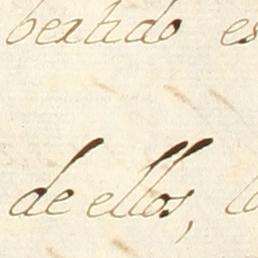 bertido es
de ellos,